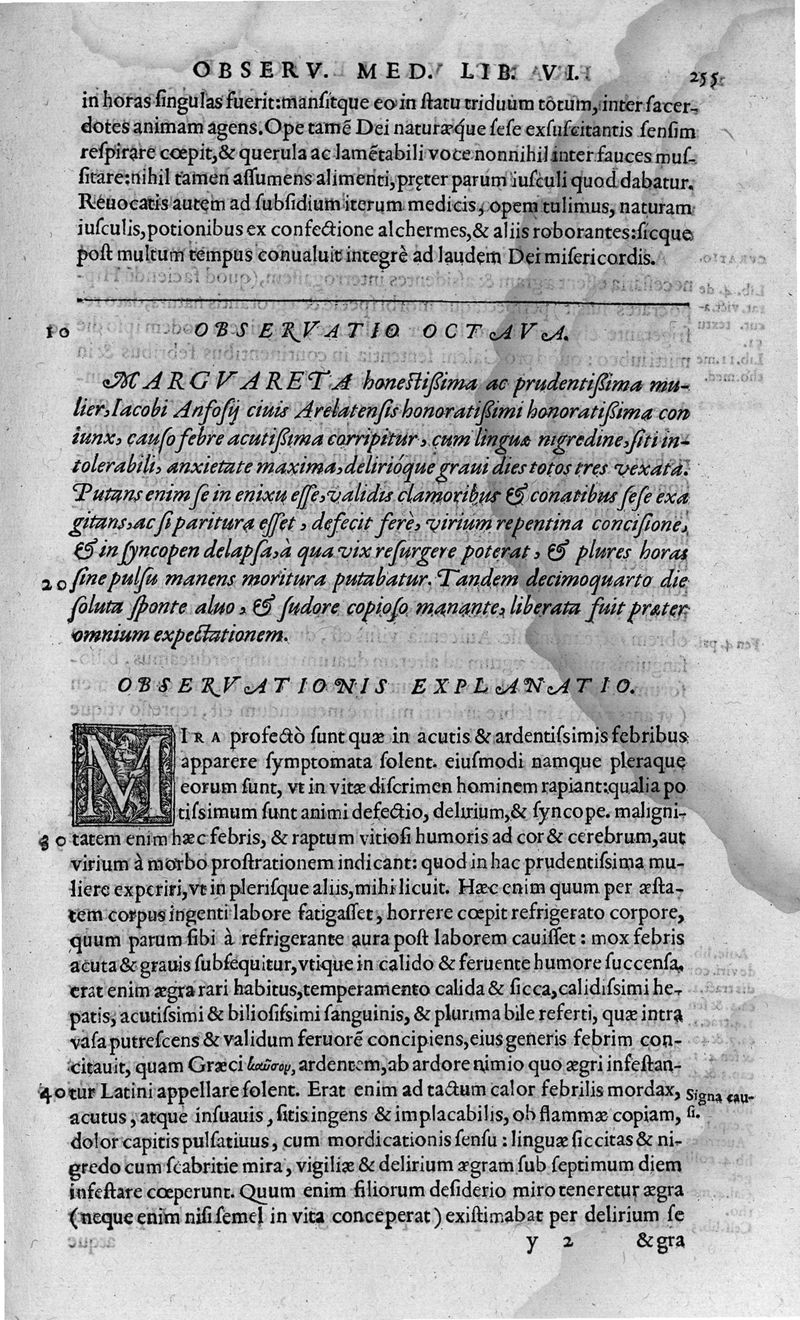 OBSERV. MED. LIB. VI. 255
in horas singulas fuerit: mansitque eo in statu triduum totum, inter sacer-
dotes animam agens. Ope tamē Dei naturæq́ue sese exsuscitantis sensim
respirare cœpit, & querula ac lamētabili voce nonnihil inter fauces mus-
sitare: nihil tamen assumens alimenti, pręter parum iusculi quod dabatur.
Reuocatis autem ad subsidium iterum medicis, opem tulimus, naturam
iusculis, potionibus ex confectione alchermes, & aliis roborantes: sicque
post multum tempus conualuit integrè ad laudem Dei misericordis.
10 OBSERVATIO OCTAVA.
MARGVARETA honestißima ac prudentißima mu-
lier, Iacobi Anfosij ciuis Arelatensis honoratißimi honoratißima con
iunx, causo febre acutißima corripitur, cum linguæ nigredine, siti in-
tolerabili, anxietate maxima, delirióque graui dies totos tres vexata.
Putans enim se in enixu esse, validis clamoribus & conatibus sese exa
gitans, ac si paritura esset, defecit ferè, virium repentina concisione,
& in syncopen delapsa, à qua vix resurgere poterat, & plures horas
20 sine pulsu manens moritura putabatur. Tandem decimoquarto die
soluta sponte aluo, & sudore copioso manante, liberata fuit præter
omnium expectationem.
OBSERVATIONIS EXPLANATIO.
MIRA profectò sunt quæ in acutis & ardentissimis febribus
apparere symptomata solent. eiusmodi namque pleraque
eorum sunt, vt in vitæ discrimen hominem rapiant: qualia po
tissimum sunt animi defectio, delirium, & syncope. maligni-
30 tatem enim hæc febris, & raptum vitiosi humoris ad cor & cerebrum, aut
virium à morbo prostrationem indicant: quod in hac prudentissima mu-
liere experiri, vt in plerisque aliis, mihi licuit. Hæc enim quum per æsta-
tem corpus ingenti labore fatigasset, horrere cœpit refrigerato corpore,
quum parum sibi à refrigerante aura post laborem cauisset: mox febris
acuta & grauis subsequitur, vtique in calido & feruente humore succensa.
erat enim ægra rari habitus, temperamento calida & sicca, calidissimi he-
patis, acutissimi & biliosissimi sanguinis, & plurima bile referti, quæ intra
vasa putrescens & validum feruorē concipiens, eius generis febrim con-
citauit, quam Græci καῦσον, ardentem, ab ardore nimio quo ægri infestan-
40 tur Latini appellare solent. Erat enim ad tactum calor febrilis mordax, Signa cau-
acutus, atque insuauis, sitis ingens & implacabilis, ob flammæ copiam, si.
dolor capitis pulsatiuus, cum mordicationis sensu: linguæ siccitas & ni-
gredo cum scabritie mira, vigiliæ & delirium ægram sub septimum diem
infestare cœperunt. Quum enim filiorum desiderio miro teneretur ægra
(neque enim nisi semel in vita conceperat) existimabat per delirium se
y 2 & gra